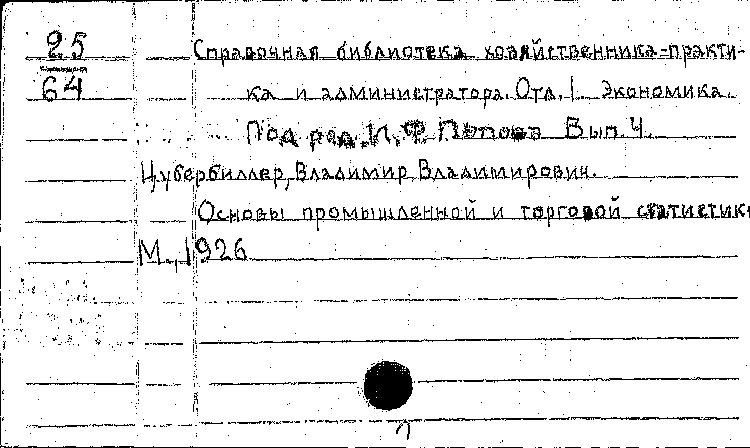 25
64
Справочная библиотека хозяйственника-практи-
ка и администратора. Отд. I Экономика.
Под ред. И. Ф. Попова Вып. 4.
Цубербиллер, Владимир Владимирович.
Основы промышленной и торговой статистики
М., 1926